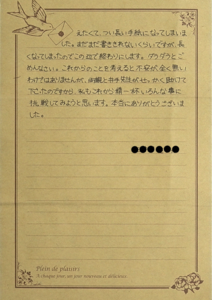 えたくて、つい長い手紙になってしまいま
した。まだまだ書ききれないくらいですが、長
くなってしまったのでこの辺で終わります。ダラダラとご
めんなさい。これからのことを考えると不安が全く無い
わけではありませんが、両親と井手先生がせっかく助けて
下さったのですから、私もこれから精一杯いろんな事に
挑戦してみようと思います。本当にありがとうございま
した。
Plein de plaisirs